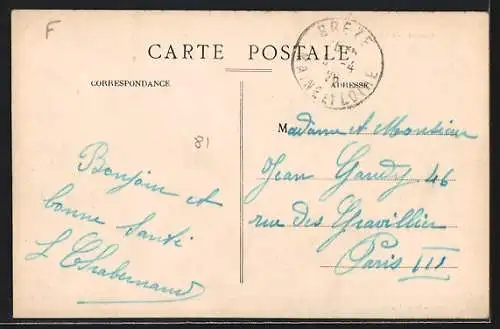 F
CARTE POSTALE
BRÉZÉ
MAINE ET LOIRE
CORRESPONDANCE
ADRESSE
81
Bonjour et
bonne santé
M
Madame et Monsieur
Jean Gandy 46
rue des Gravillier
Paris III